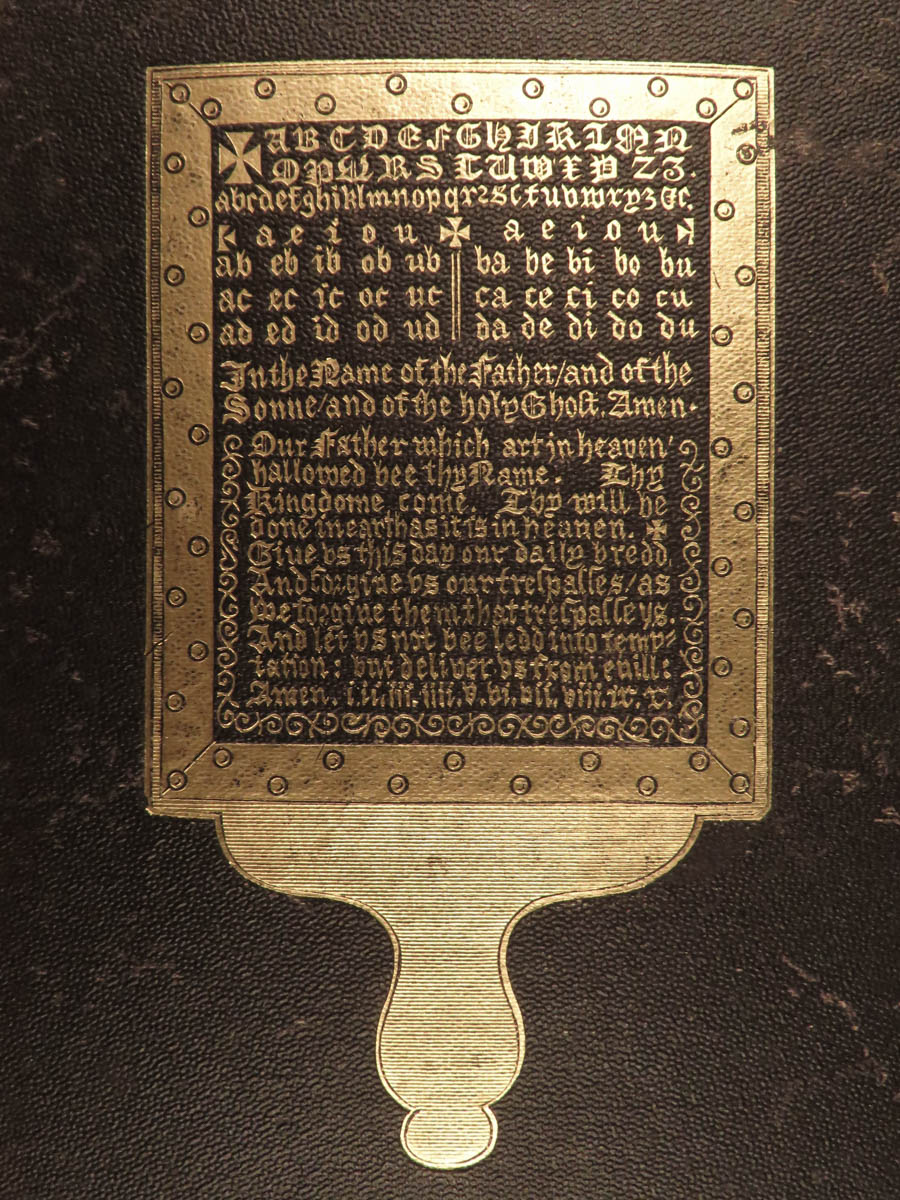 ✠ A B C D E F G H I K L M N
O P Q R S T U W X Y Z 3.
abcdefghiklmnopqrꝛsſtuvwxyz &c.
a e i o u ✠ a e i o u
ab eb ib ob ub ba be bi bo bu
ac ec ic oc uc ca ce ci co cu
ad ed id od ud da de di do du
In the Name of the Father/and of the
Sonne/and of the holy Ghost. Amen.
Our Father which art in heaven'
hallowed bee thy Name. Thy
Kingdome come. Thy will be
done in earth as it is in heauen. ✠
Giue vs this day our daily bredd
And forgiue vs our treſpaſſes/as
we forgiue them that treſpaſſe vs.
And let vs not bee ledd into temp-
tation: but deliver vs from euill:
Amen. i. ii. iii. iiii. v. vi. vii. viii. ix. x.